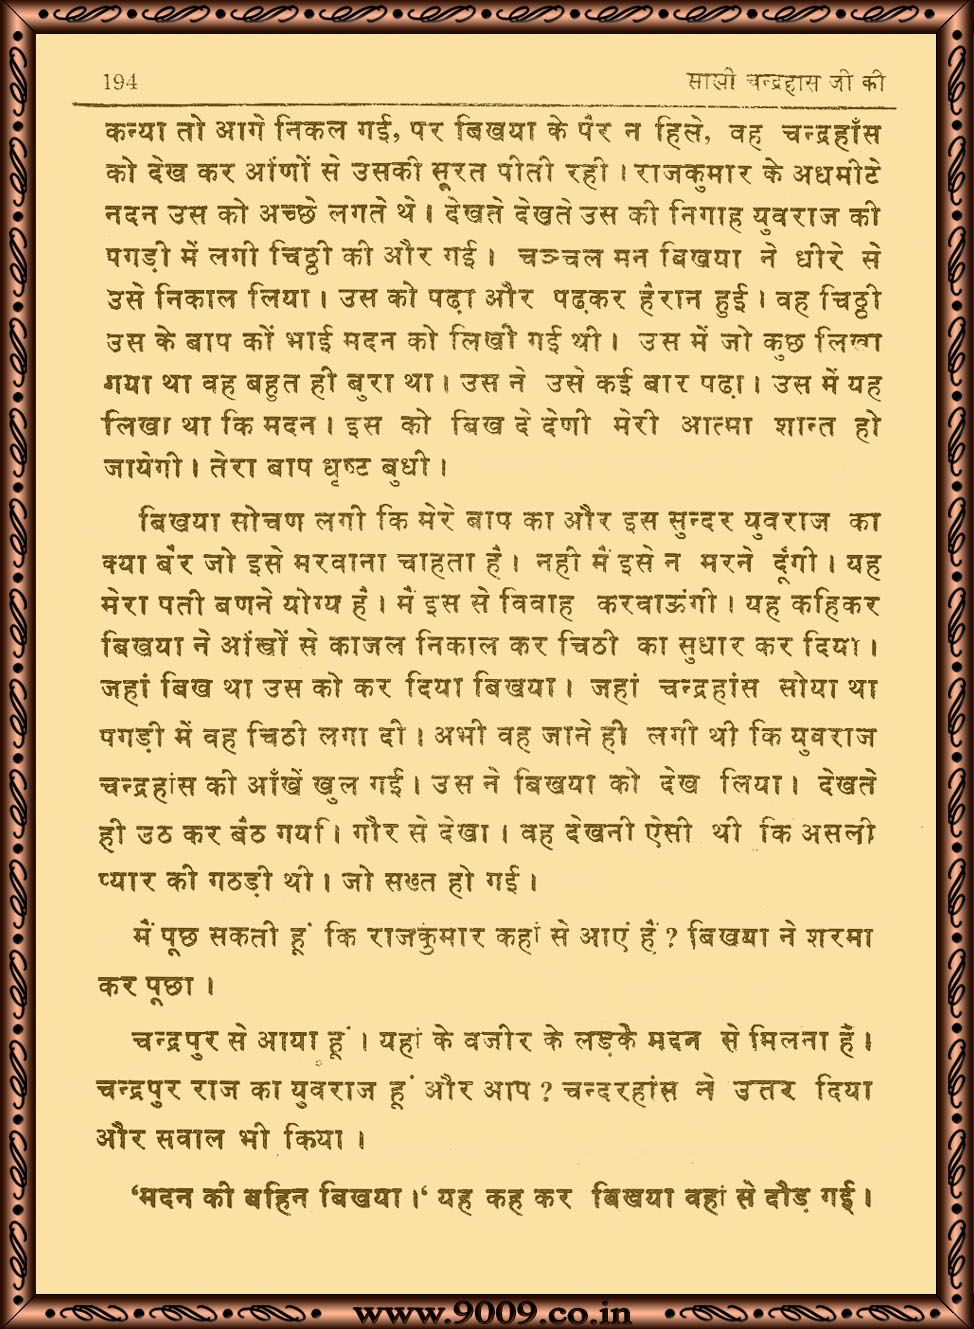 194 साखी चन्द्रहास जी की
कन्या तो आगे निकल गई, पर बिखया के पैर न हिले, वह चन्द्रहाँस
को देख कर आंणों से उसकी सूरत पीती रही । राजकुमार के अधमीटे
नदन उस को अच्छे लगते थे । देखते देखते उस की निगाह युवराज की
पगड़ी में लगी चिठ्ठी की और गई । चञ्चल मन बिखया ने धीरे से
उसे निकाल लिया । उस को पढ़ा और पढ़कर हैरान हुई । वह चिठ्ठी
उस के बाप कों भाई मदन को लिखी गई थी । उस में जो कुछ लिखा
गया था वह बहुत ही बुरा था । उस ने उसे कई बार पढ़ा । उस में यह
लिखा था कि मदन । इस को बिख दे देणी मेरी आत्मा शान्त हो
जायेगी । तेरा बाप धृष्ट बुधी ।
बिखया सोचण लगी कि मेरे बाप का और इस सुन्दर युवराज का
क्या बैर जो इसे मरवाना चाहता है । नहीं मैं इसे न मरने दूंगी । यह
मेरा पती बणने योग्य है । मैं इस से विवाह करवाऊंगी । यह कहिकर
बिखया ने आंखों से काजल निकाल कर चिठी का सुधार कर दिया ।
जहां बिख था उस को कर दिया बिखया । जहां चन्द्रहांस सोया था
पगड़ी में वह चिठी लगा दी । अभी वह जाने ही लगी थी कि युवराज
चन्द्रहांस की आँखें खुल गई । उस ने बिखया को देख लिया । देखते
ही उठ कर बैठ गया । गौर से देखा । वह देखनी ऐसी थी कि असली
प्यार की गठड़ी थी । जो सख्त हो गई ।
मैं पूछ सकती हूं कि राजकुंमार कहां से आएं हैं ? बिखया ने शरमा
कर पूछा ।
चन्द्रपुर से आया हूं । यहां के वजीर के लड़के मदन से मिलना है ।
चन्द्रपुर राज का युवराज हूं और आप ? चन्दरहांस ने उतर दिया
और सवाल भी किया ।
‘मदन की बहिन बिखया ।‘ यह कह कर बिखया वहां से दौड़ गई ।
www.9009.co.in